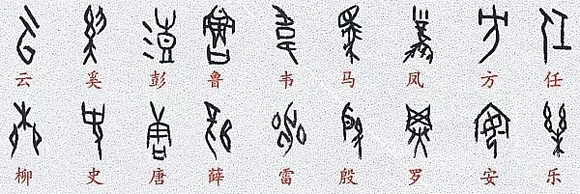 云 奚 彭 鲁 韦 马 凤 方 任
柳 史 唐 薛 雷 殷 罗 安 乐